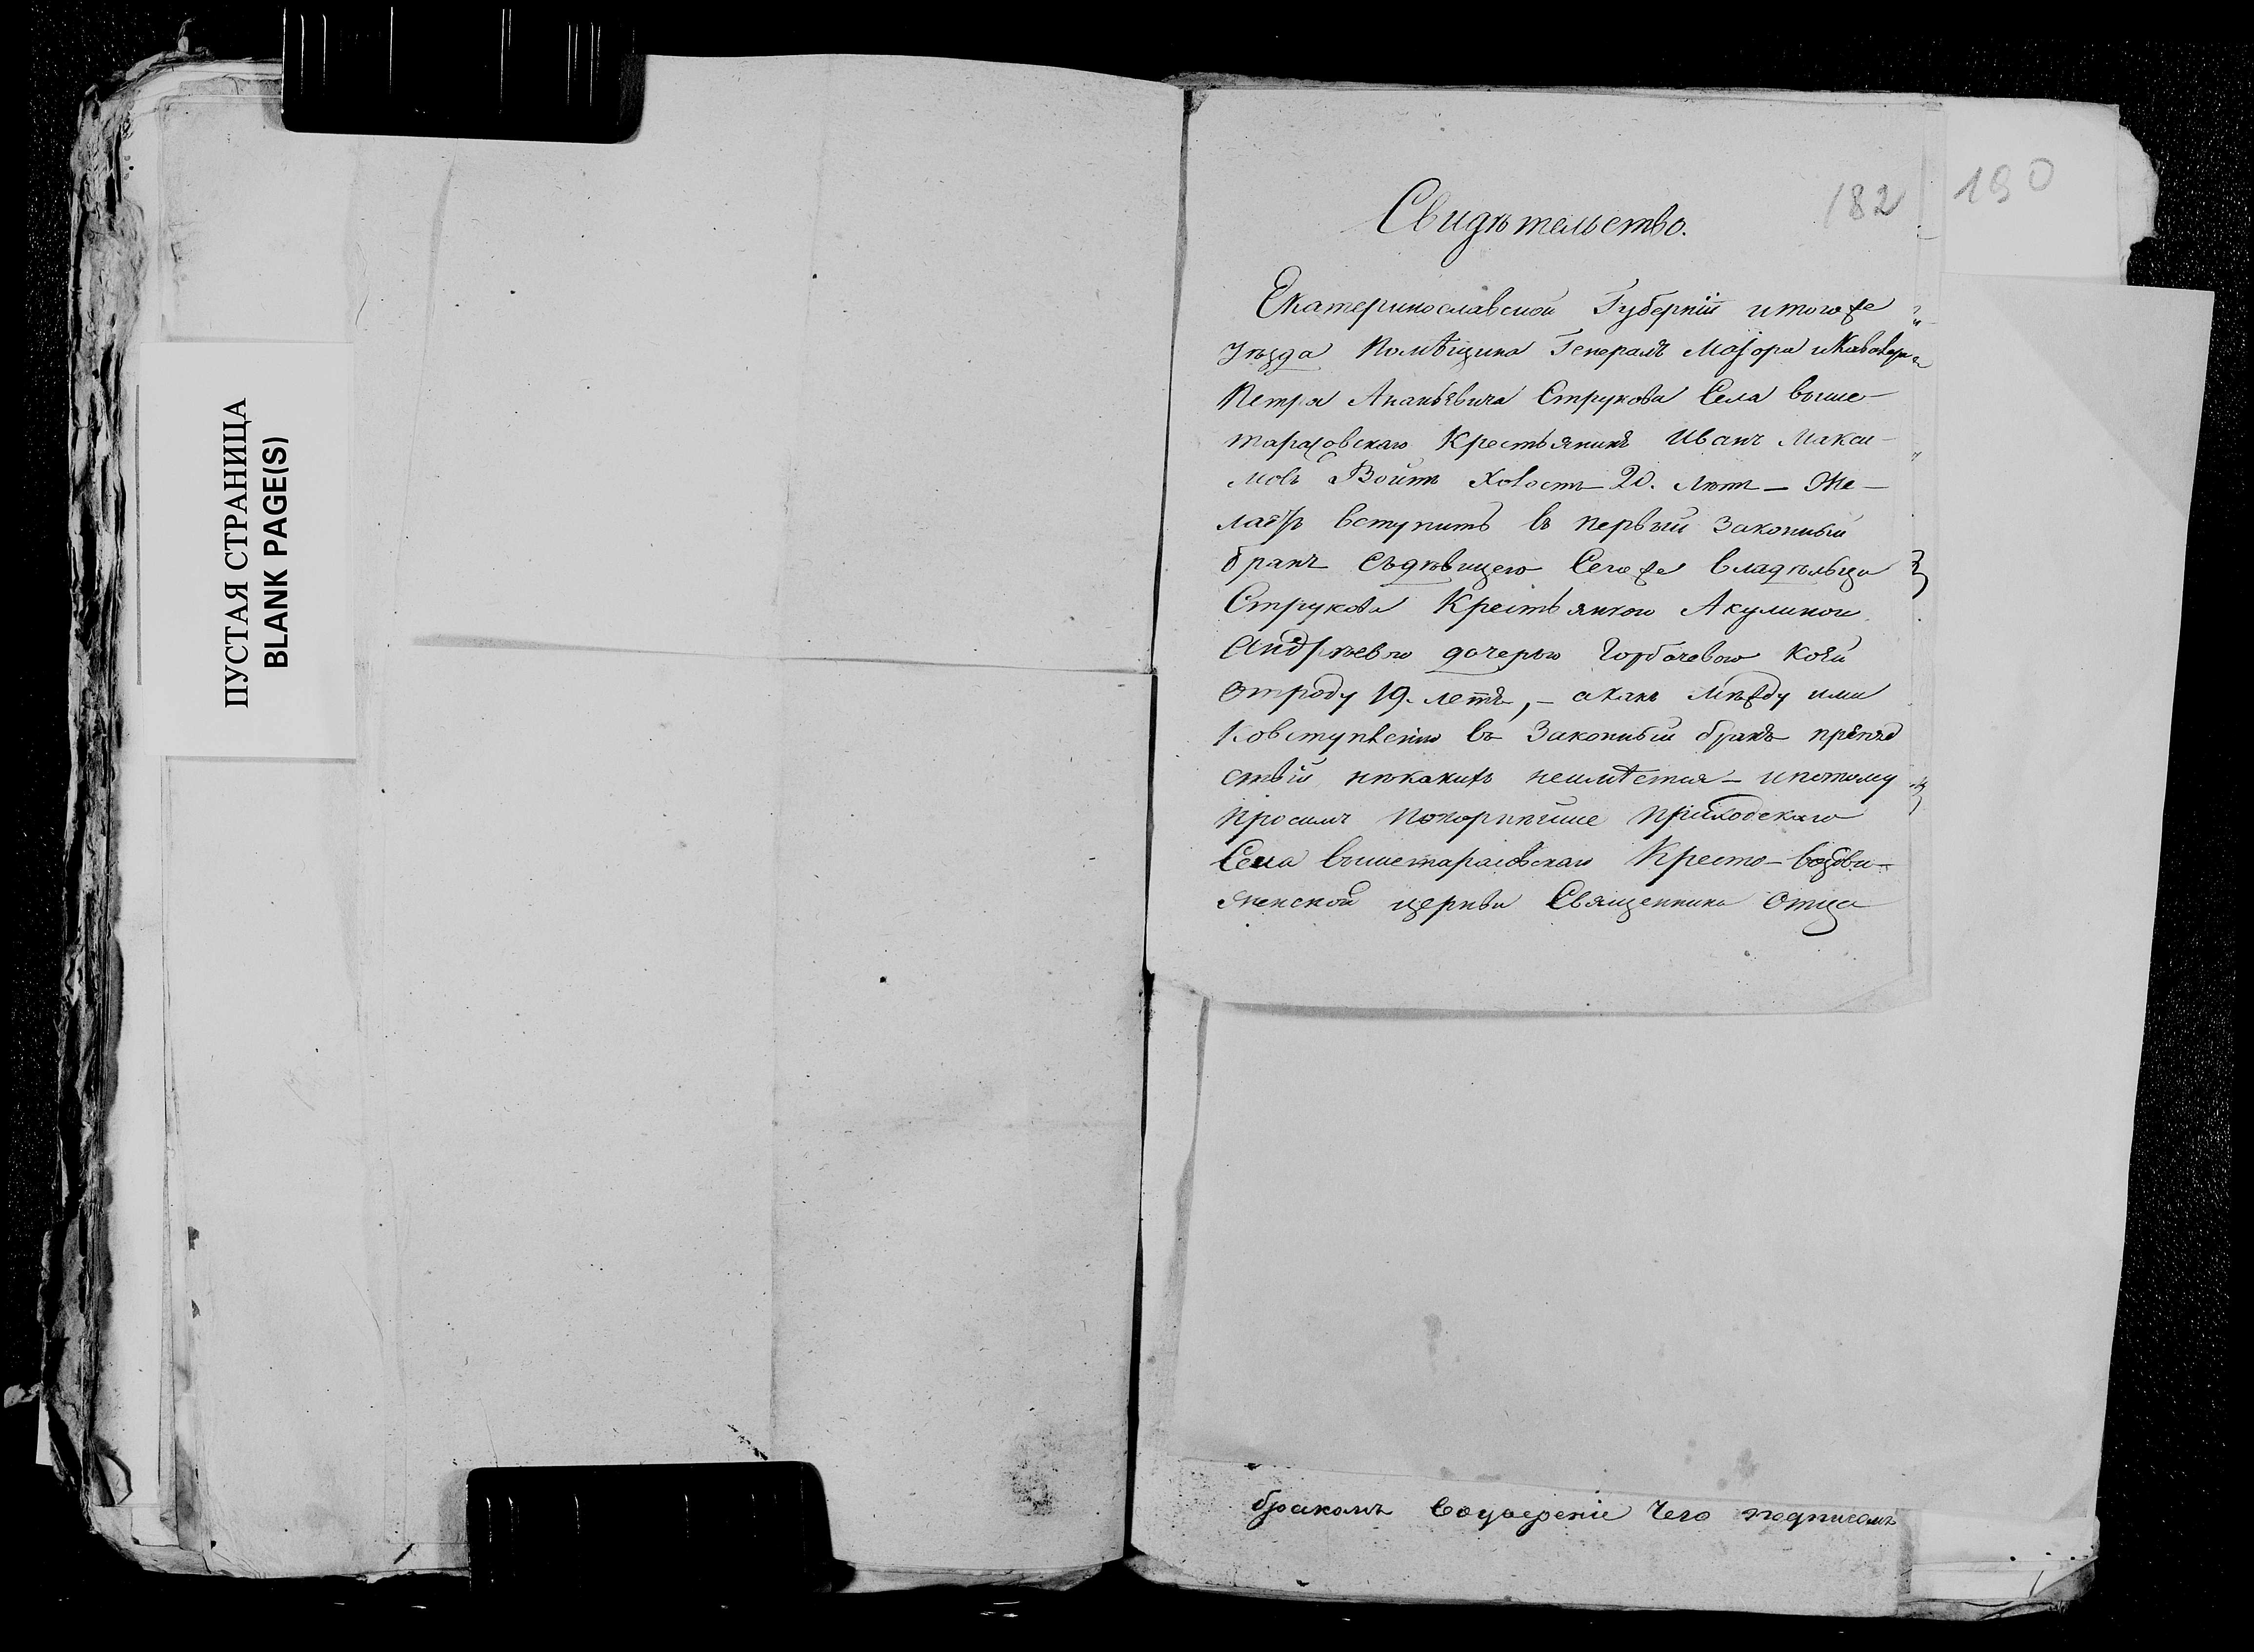 ПУСТАЯ СТРАНИЦА
BLANK PAGE(S)
182
190
Свидѣтельство.
Екатеринославской Губернїи итогоже
уѣзда Помѣщика Генералъ Маїора иКавалера
Петра Ананьевича Струкова Села выше-
тарасовскаго Крестьянинъ Иванъ Макси-
мовъ Войтъ Холостъ 20. лѣтъ - Же-
лаетъ вступить въ первый законный
бракъ Съдѣвицею Сегоже владѣльца
Струкова Крестьянкою Акулиною
Андрѣевою дочерью Горбачевою коей
отроду 19. летъ, - акакъ Мѣжду ими
Ковступленїю въ Законный бракъ препят
ствїй нѣкакихъ неимѣется - ипотому
просимъ покорнѣйше приходскаго
Села вышетарасовскаго Кресто-воздви-
женской церкви Священника Отца
бракомъ Воуверенїе Чего подписомъ